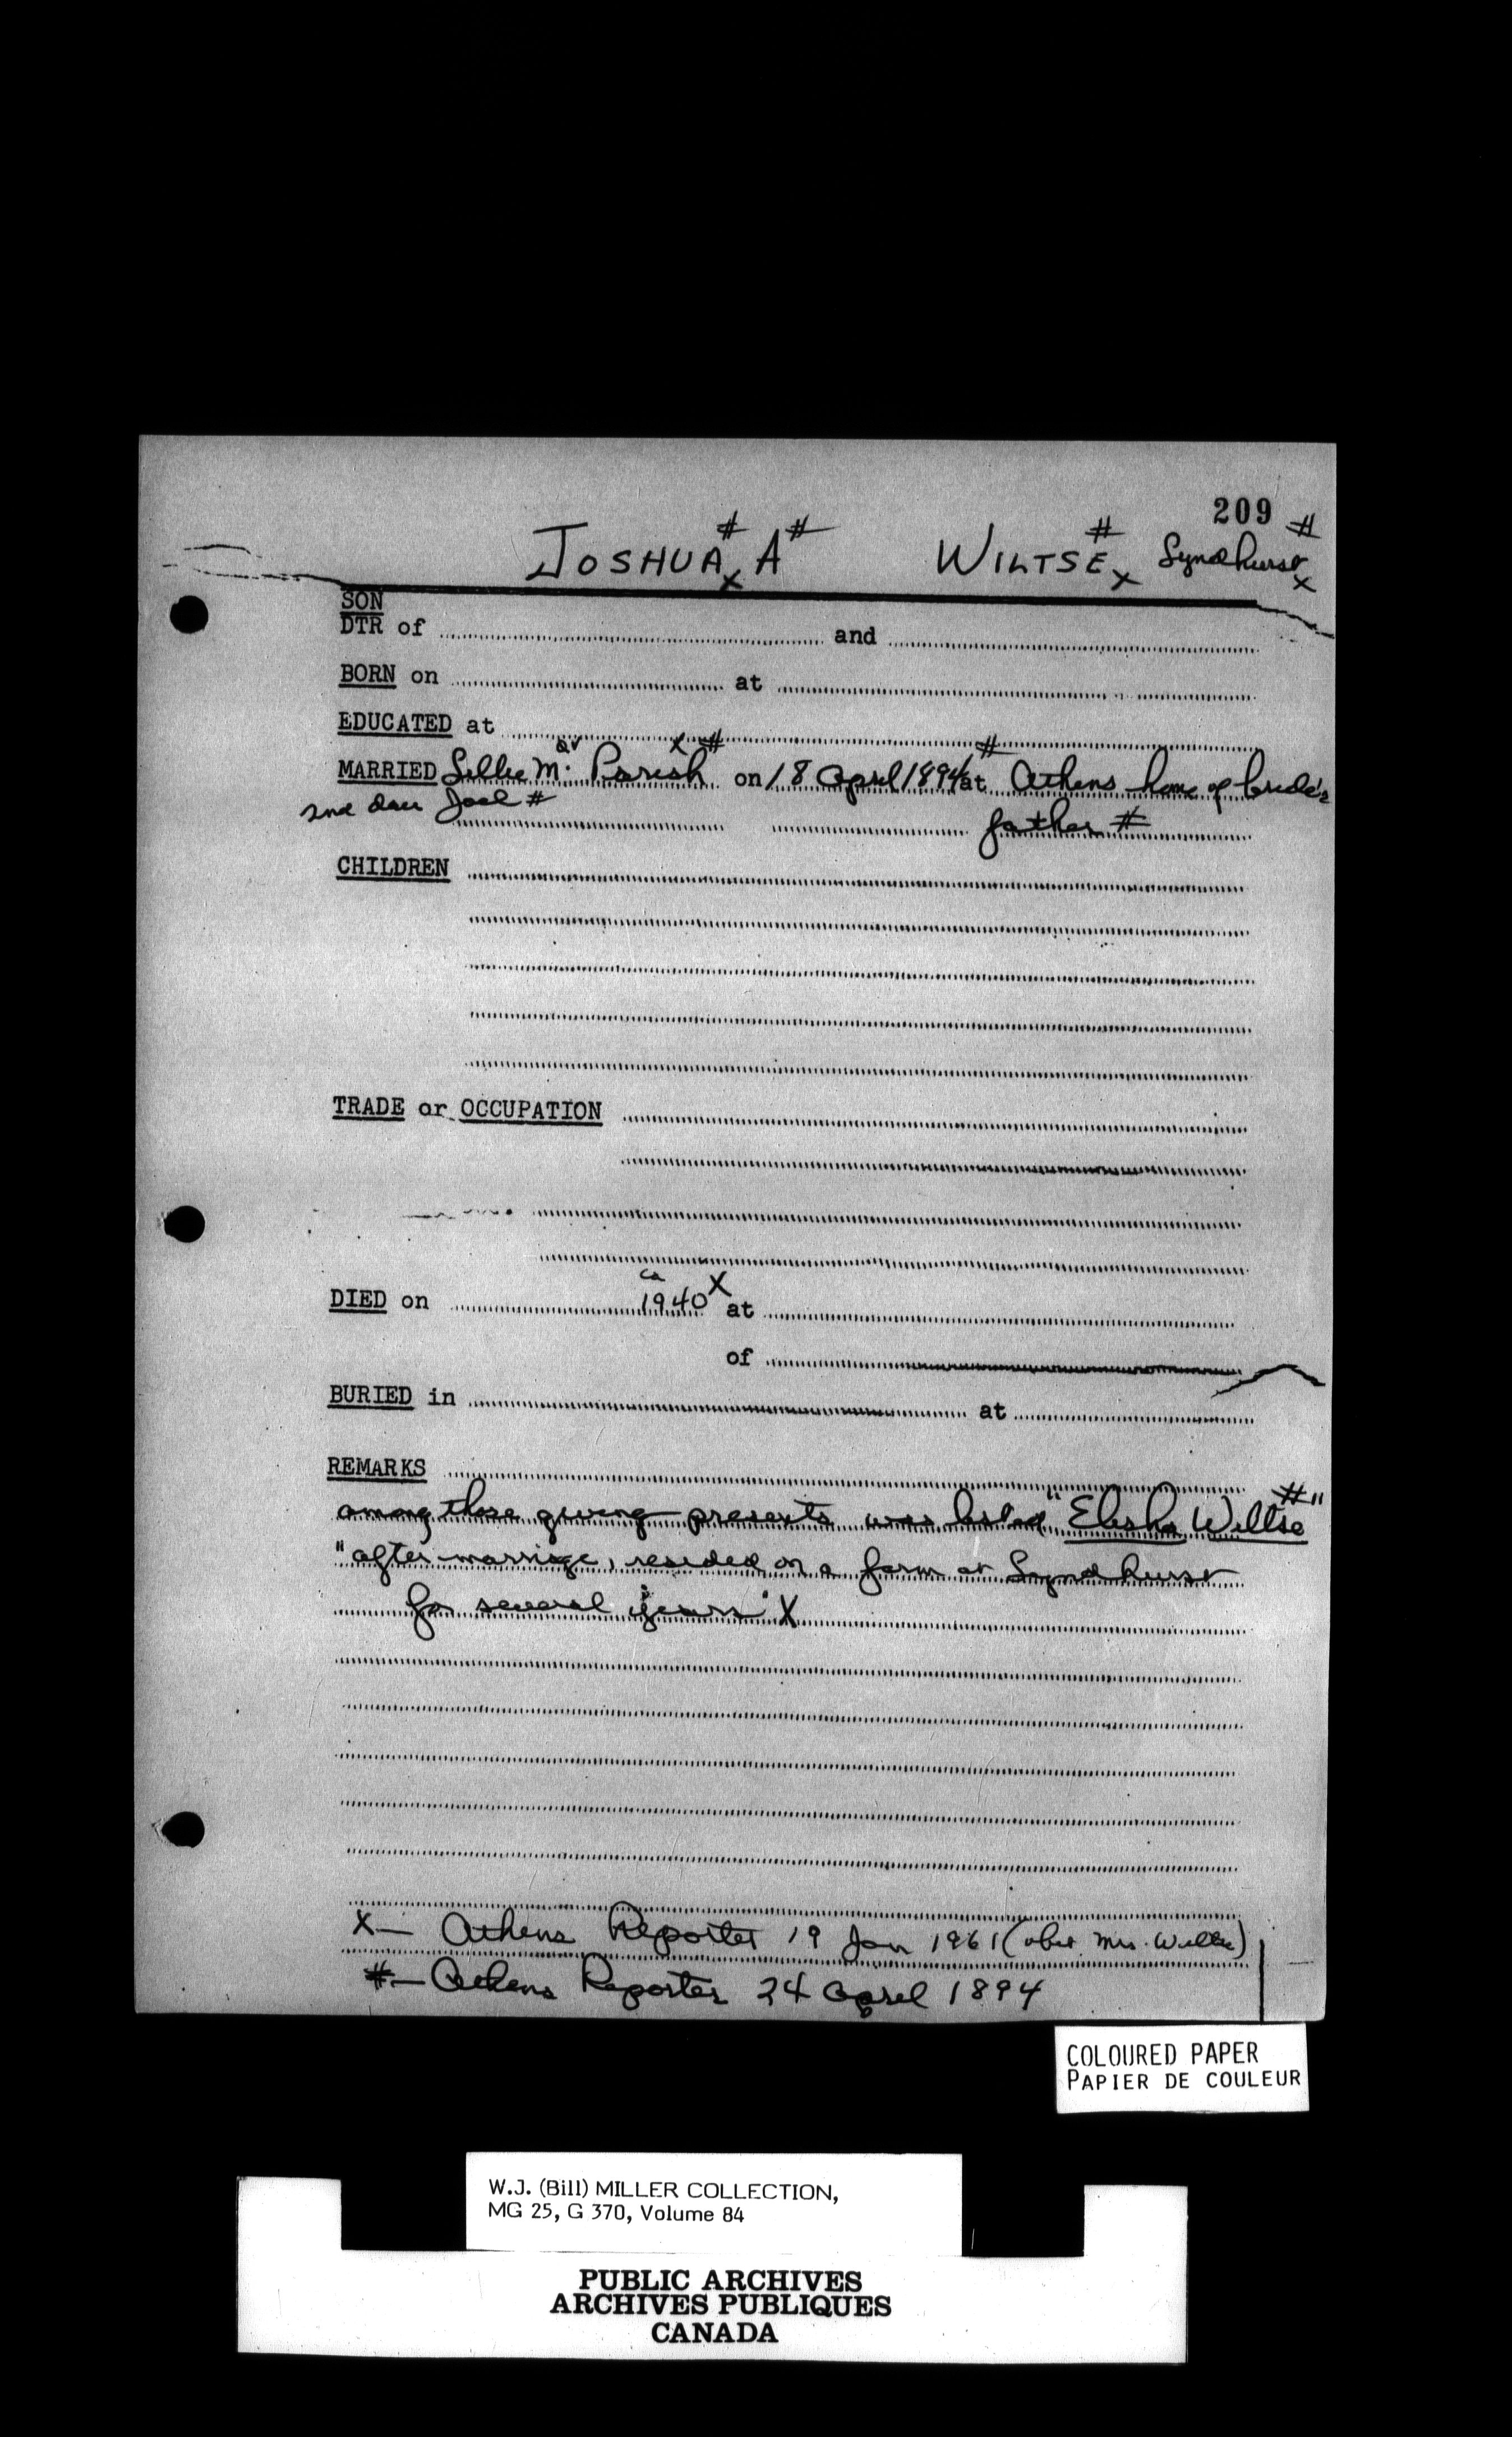 209
JOSHUA #x A # WILTSE # x Lyndhurst # x
SON
DTR of and
BORN on at
EDUCATED at
MARRIED Lillie M. QV Parish x # on 18 April 1894 # at Athens home of bride's
2nd dau Joel # father #
CHILDREN
TRADE or OCCUPATION
DIED on ca 1940 X at
of
BURIED in at
REMARKS
among those giving presents was listed "Elisha Wiltse #"
"after marriage, resided on a farm at Lyndhurst
for several years" X
X— Athens Reporter 19 Jan 1961 (obit Mrs. Wiltse)
#— Athens Reporter 24 April 1894
COLOURED PAPER
PAPIER DE COULEUR
W.J. (Bill) MILLER COLLECTION,
MG 25, G 370, Volume 84
PUBLIC ARCHIVES
ARCHIVES PUBLIQUES
CANADA